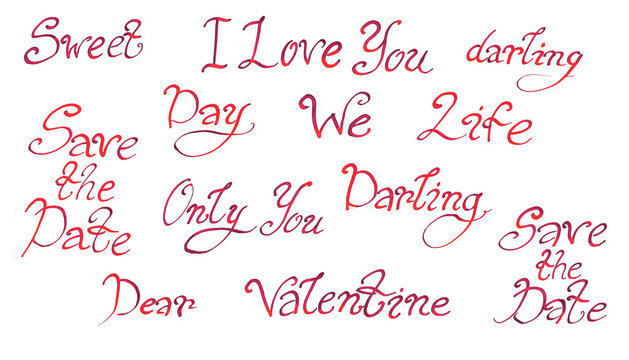 Sweet
I Love You
darling
Day
We
Life
Save
the
Date
Only You
Darling
Save
the
Date
Dear
Valentine